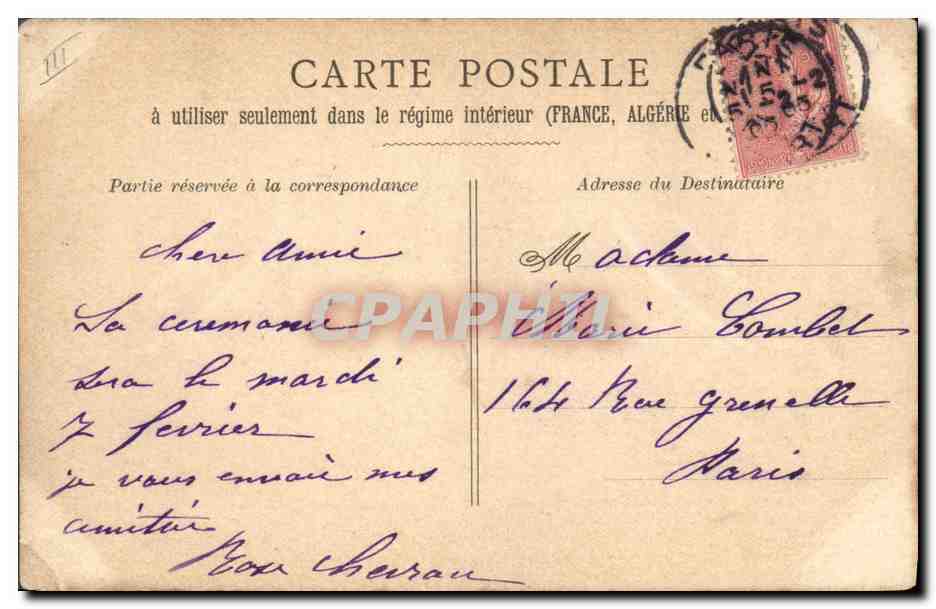 III
CARTE POSTALE
à utiliser seulement dans le régime intérieur (FRANCE, ALGÉRIE et
Partie réservée à la correspondance
cher amie
La ceremonie
sera le mardi
7 fevrier
je vous envoie mes
amitiés
Rose
Adresse du Destinataire
Madame
Marie Combet
164 Rue grenelle
Paris
CPAPHIL